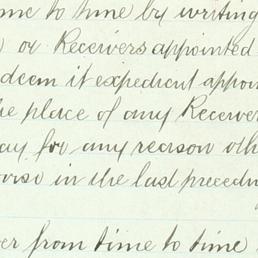 me to time by writing
or Receivers appointed
deem it expedient appoin
he place of any Receiver
ay for any reason oth
wise in the last preced
er from time to time